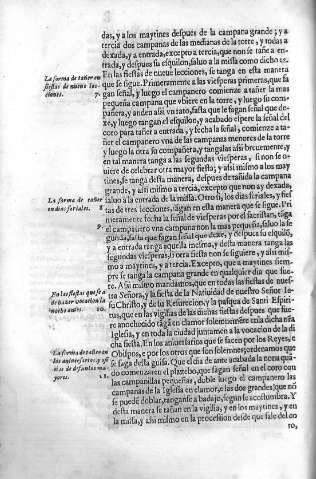 das, y a los maytines despues de la campana grande; y a
tercia dos campanas de las medianas de la torre, y todas a
dexada, y a entrada, excepto a tercia, que non se tañe a en-
trada, y despues su esquilon, saluo a la missa como dicho es.
La forma de tañer en
fiestas de nueue lec-
ciones. 7.
En las fiestas de nueue lecciones, se tanga en esta manera
que se sigue. Primeramente a las viesperas primeras, que fa
gan señal, y luego el campanero comience a tañer la mas
pequeña campana que vbiere en la torre, y luego su com-
pañera, y anden assi vn rato, fasta que le fagan señal que de-
xe, y luego tangan el esquilon, y acabado espere la señal del
coro para tañer a entrada, y fecha la señal, comience a ta-
ñer el campanero vna de las campanas menores de la torre
y luego la otra su compañera, y tangalas assi breuemente, y
en tal manera tanga a las segundas viesperas, si non se o-
uiere de celebrar otra mayor fiesta; y assi mismo a los may-
tines, se tanga desta manera, despues de tañida la campana
grande, y assi mismo a tercia, excepto que non ay dexada,
La forma de tañer
en dias feriales.
9
saluo a la entrada de la missa. Otro si, los dias feriales, y fies-
tas de tres lecciones, tagan en esta manera que se sigue. Pri
meramente fecha la señal de viesperas por el sacristan, tāga
el campanero vna campana non la mas pequeña, saluo la se
gunda, fasta que fagan señal que dexe, y despues su esquilō,
y a entrada tanga aquella mismo, y desta manera tanga las
segundas viesperas, si otra fiesta non se siguiere, y assi mis-
mo a maytines, y a tercia. Excepto, que a maytines siem-
pre se tanga la campana grande en qualquier dia que fue-
En las fiestas que se
de hazer vocacion la
noche antes. 10.
re. Assi mismo mandamos, que en todas las fiestas de nues-
tra Señora, y la fiesta de la Natiuidad de nuestro Señor Ie-
su Christo, y de su Resurrecion, y la pasqua de Sancti Espiri-
tus, que en las vigilias de las dichas fiestas despues que fue-
re anochecido tāgan clamor solennemente en la dicha nra
Iglesia, y en toda la ciudad juntamente a la vocacion de la di
cha fiesta. En los aniuersarios que se facen por los Reyes, e
La forma de tañer en
dos aniuersarios, y si-
tias de defuntos ma-
yores. 11.
Obispos, e por los otros que son solemnes, ordenamos que
se faga desta guisa. Que el dia de ante acabada la nona quā-
do comenzaren el placebo, que fagan señal en el coro con
las campanillas pequeñas, doble luego el campanero las
campanas de la Iglesia en clamor, e las dos grandes, que nō
se puede doblar, tanganse a badajo, segun se acostumbra. Y
desta manera se tañan en la vigilia, y en los maytines, y en
la missa, y assi mismo en la procession desde que sale del co
ro,